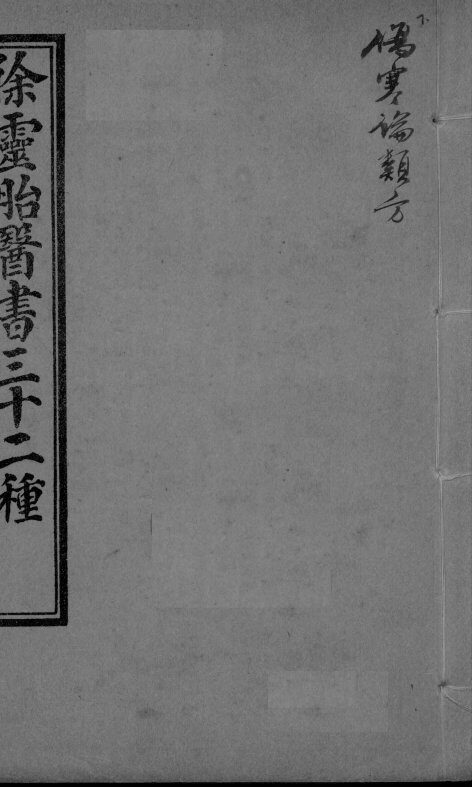 下
傷寒論類方
徐靈胎醫書三十二種